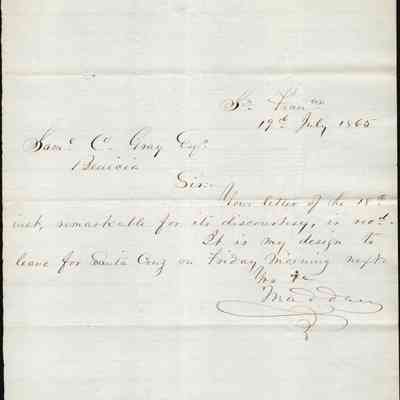 Sn Franco
19th July 1865
Saml C. Gray Esqr
Benicia
Sir:
Your letter of the 18th
inst, remarkable for its discourtesy, is recd.
It is my design to
leave for Santa Cruz on Friday Morning next.
Yrs &c